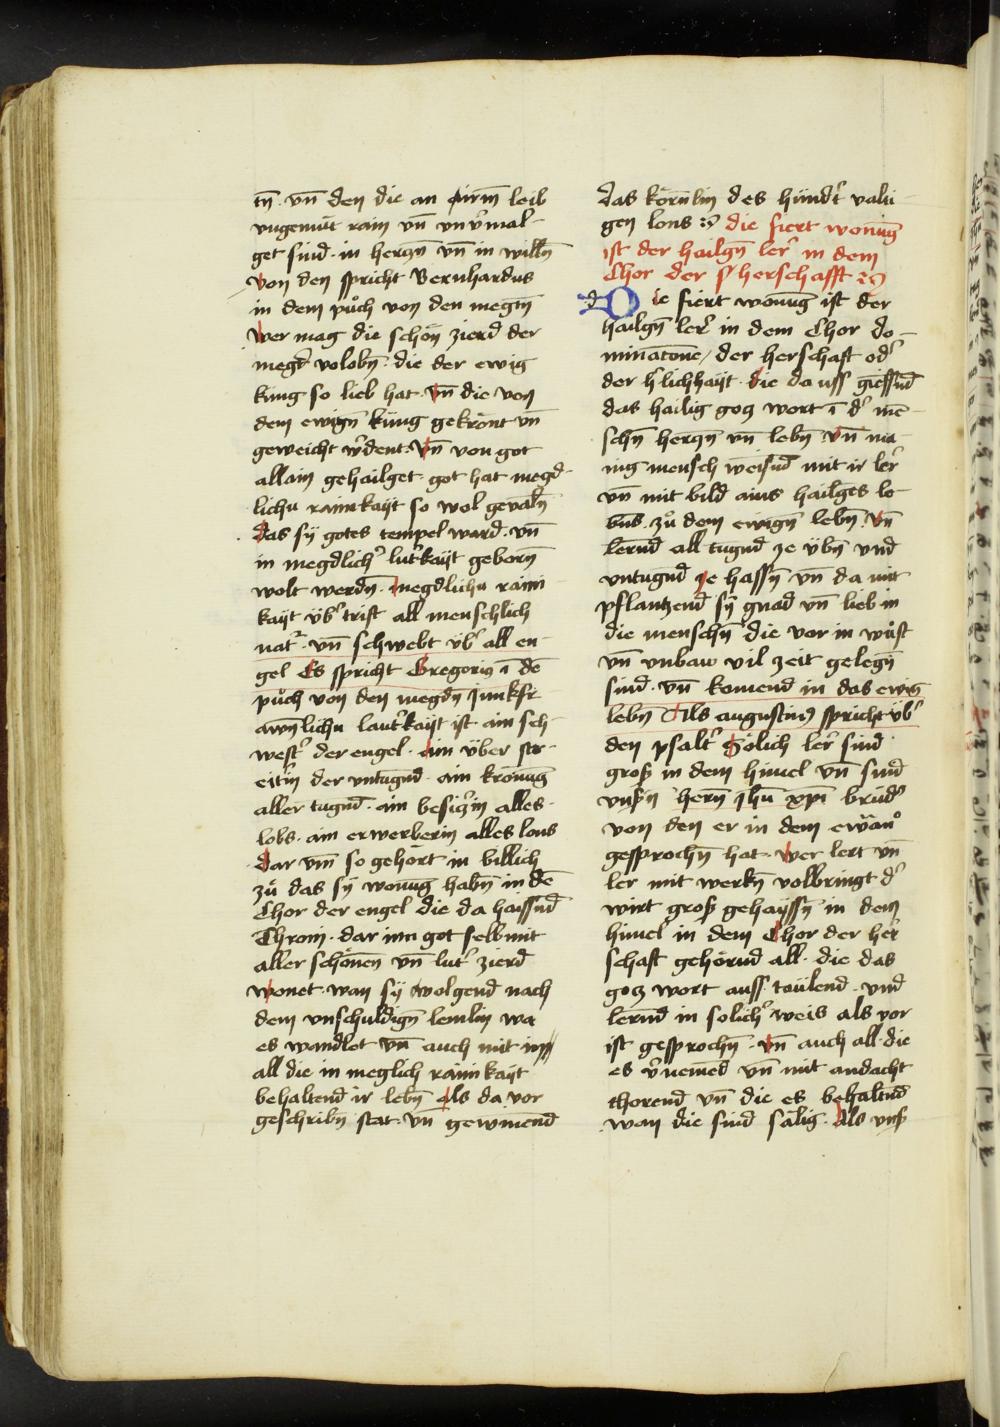 tn̄. vn̄ den die an irm̄ leib
vngemüt rain vn̄ vn v̓mal-
get sind. in herczn̄ vn̄ in willn̄
von den spricht Bernhardus
in dem půch von den megtn̄
Wer mag die schön zierd der
megd̓ volobn̄. die der ewig
küng so lieb hat. Vn̄ die von
dem ewign̄ küng gekrönt vn̄
geweicht w̓dent. Vn̄ von got
allain gehailget. got hat megd-
lichu rainikayt so wol gevaln̄
das sÿ gotes tempel ward. vn̄
in megdlich̓ lut̓kayt geborn̄
wolt werdn̄. megdlichu raini
kayt üb̓ trift all menschlich
nat̓. vn̄ schwebt üb̓ all en-
gel Es spricht Gregori9 ī dē
půch von den megdn̄ Junkfr
awnlichu laut̓kayt ist. ain sch-
west̓ der engel. ain über str-
eitin̄ der vntugnd̄. ain krönuḡ
aller tugnd̄. ain besiczin̄ alles
lobs. ain erwerberin alles lons
Dar vm̄ so gehört in billich
zů das sÿ wonuḡ habn̄ in dē
Chor der engel die da haissnd̄
Throni. dar inn got selb mit
aller schönen vn̄ lut̓ zierd
wonet. wan sÿ volgend̄ nach
dem vnschuldign̄ lemlin wa
es wandlot vn̄ auch mit im
all die in meglich rainikayt
behaltend̄ ir lebn̄ als da vor
geschribn̄ stat. vn̄ gewinnend̄
das körnlin des hundt̓ valti
gen lons die fiert wonuḡ
ist der hailgn̄ ler̓ in dem
Chor der herschafft
Die fiert wonuḡ ist der
hailgn̄ ler̓ in dem Chor do-
minatione, der herschaft od̓
der h̓lichhayt. die da uss giessnd̄
das hailig gocz wort ī d̓ mē-
schn̄ herczn̄ vn̄ lebn̄ Vn̄ ma-
nig mensch weisnd̄ mit ir ler̓
vn̄ mit bild ains hailges le-
bns. zů dem ewign̄ lebn̄. Vn̄
lernd̄ all tugnd̄ ze übn̄ vnd
vntugnd̄ ze hassn̄ vn̄ da mit
pflantzend̄ sÿ gnad vn̄ lieb in
die menschn̄ die vor in wůst
vn̄ vnbaw vil zeit gelegn̄
sind. vn̄ komend in das ewig
lebn̄ Als augustin9 spricht üb̓
den psalt̓ Sölich ler̓ sind
groß in dem himel vn̄ sind̄
vnßn̄ hern̄ Jhū xpī brüd̓
von den er in dem ewan̊
gesprochn̄ hat. Wer lert vn̄
ler mit werkn̄ volbringt d̓
wirt groß gehayssn̄ in dem
himel in dem Chor der her̓
schaft gehörnd all. die das
gocz wort auss taülend. vnd̄
lernd̄ in solich̓ weis als vor
ist gesprochn̄. Vn̄ auch all die
es v̓nemed̄ vn̄ mit andacht
thorend vn̄ die es behaltnd̄
wan die sind sälig. Als vnß